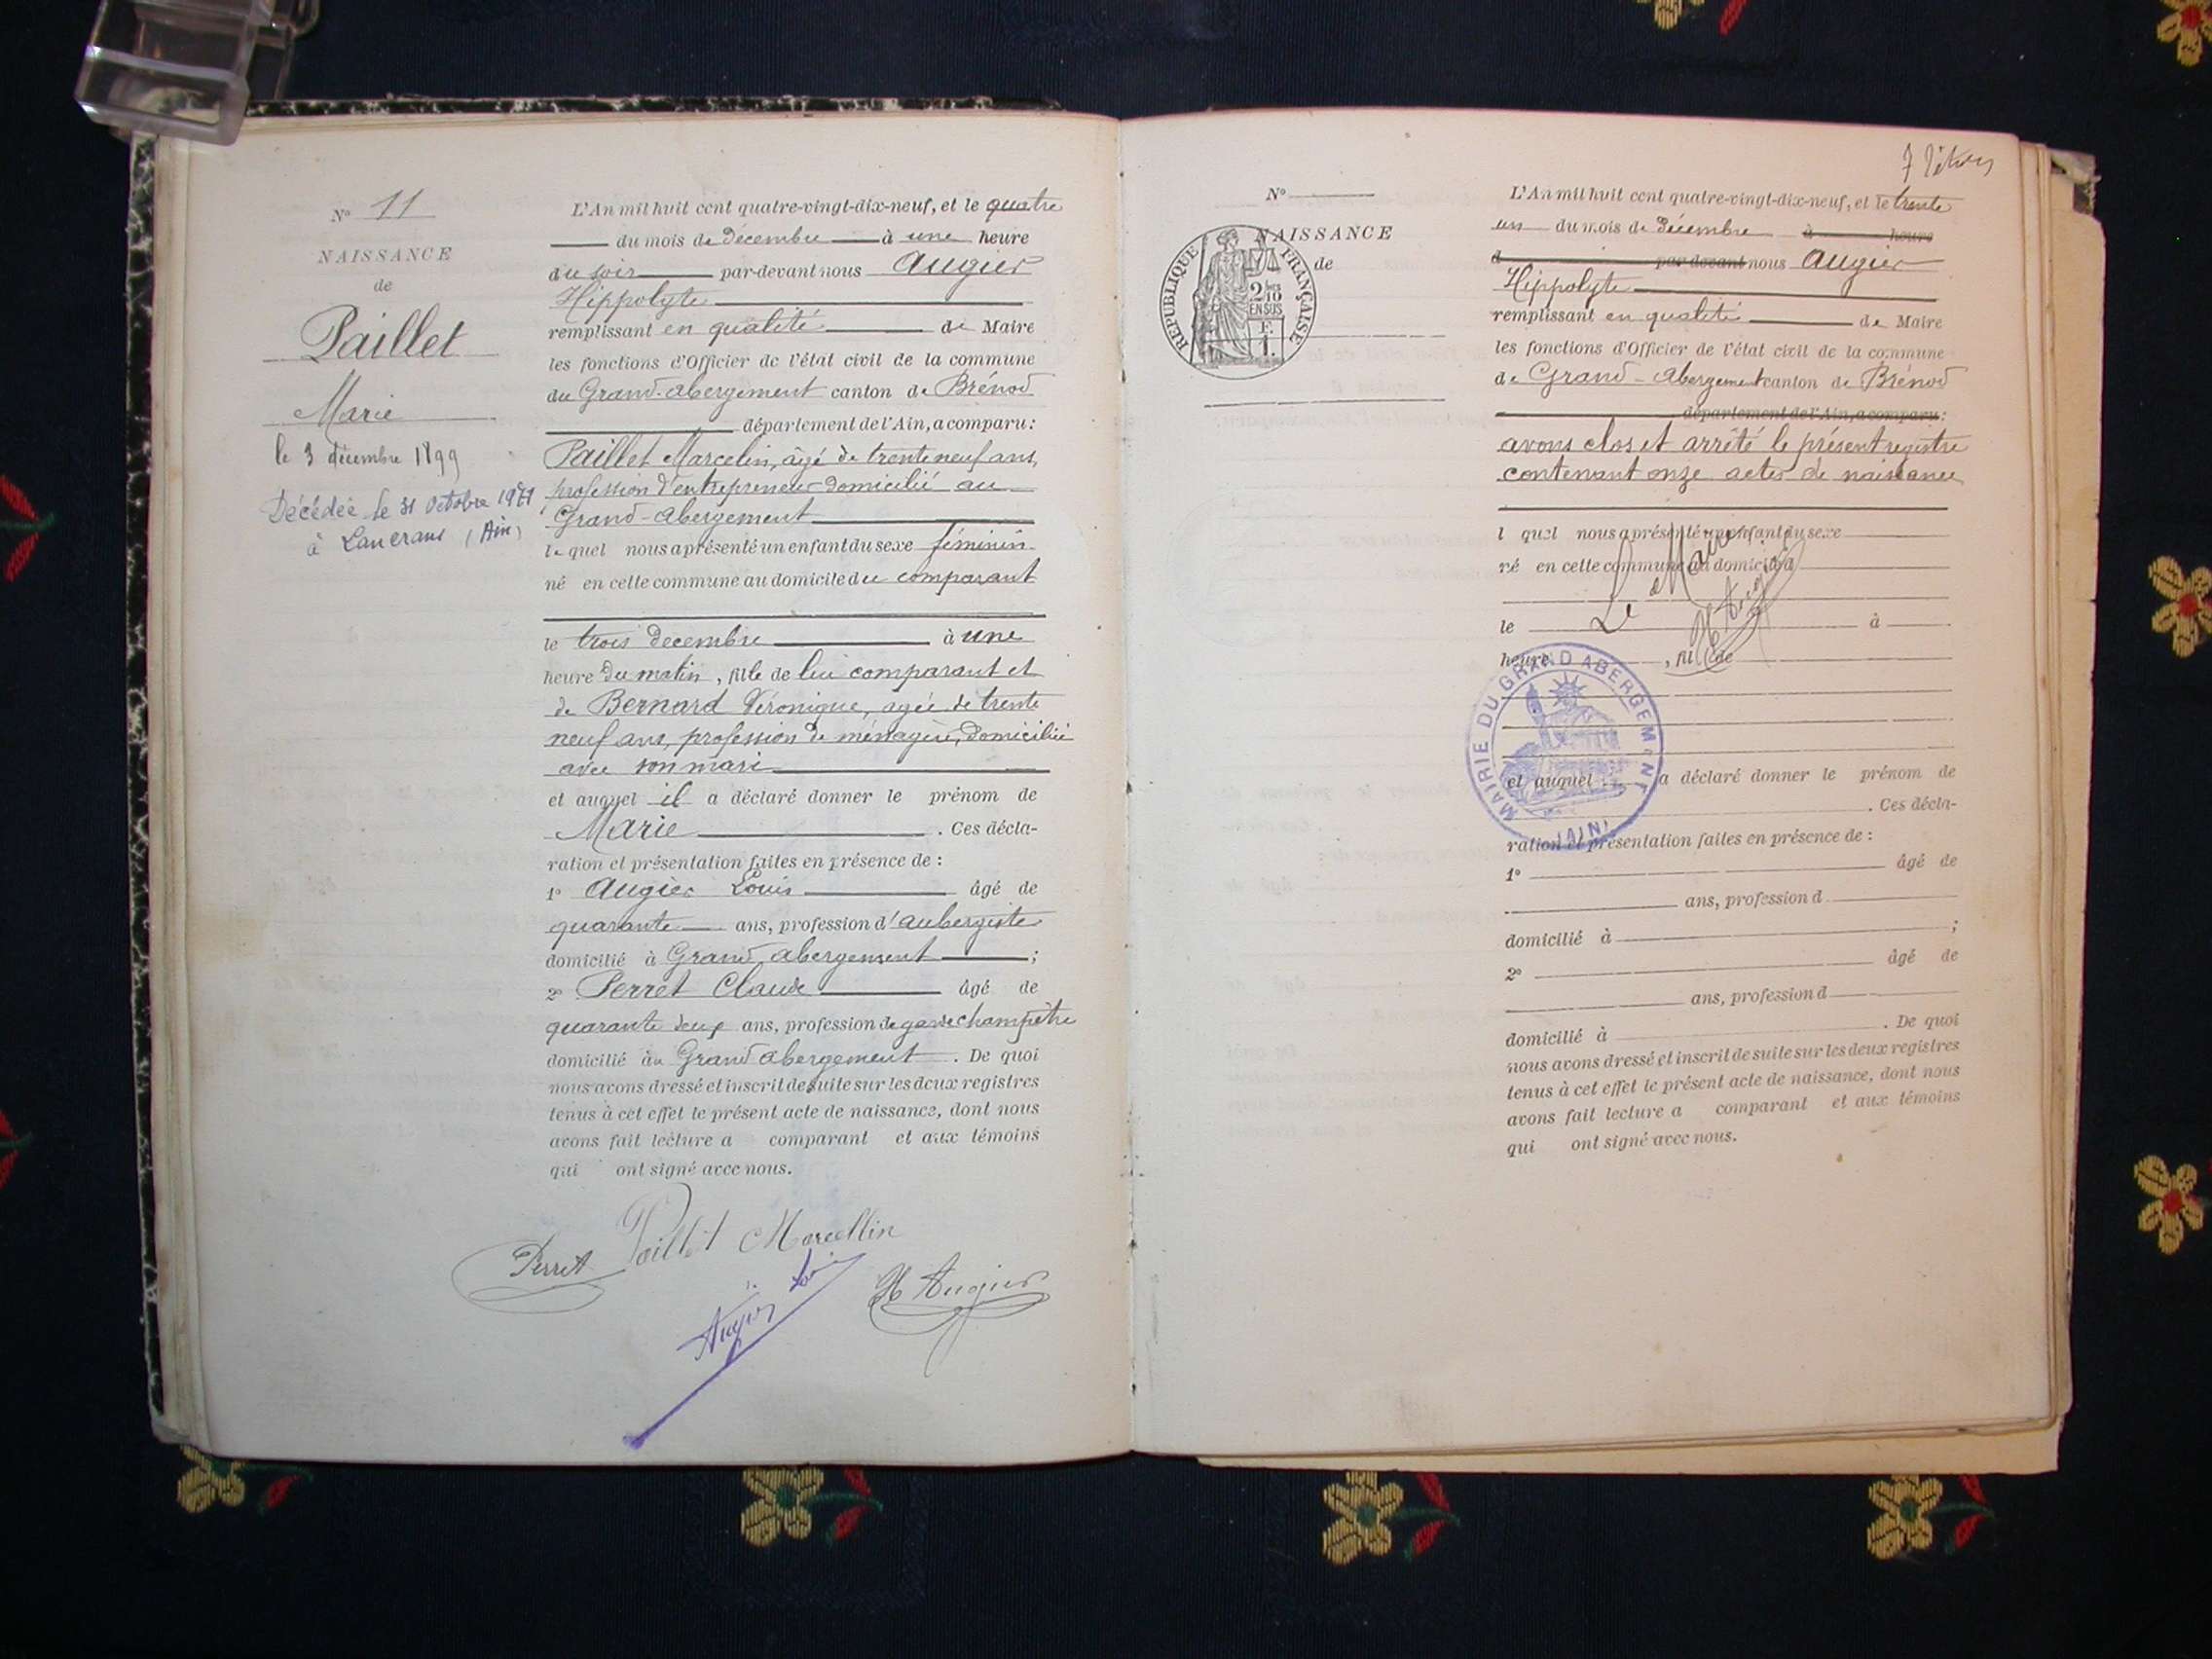 N° 11
NAISSANCE
de
Paillet
Marie
le 3 décembre 1899
Décédée le 31 Octobre 1971
à Lancrans (Ain)
L'An mil huit cent quatre-vingt-dix-neuf, et le quatre
du mois de décembre à une heure
du soir par-devant nous Augier
Hippolyte
remplissant en qualité de Maire
les fonctions d'Officier de l'état civil de la commune
du Grand-Abergement canton de Brénod
département de l'Ain, a comparu:
Paillet Marcelin, âgé de trente neuf ans,
profession d'entrepreneur domicilié au
Grand-Abergement
lequel nous a présenté un enfant du sexe féminin
né en cette commune au domicile du comparant
le trois decembre à une
heure du matin, fille de lui comparant et
de Bernard Véronique, agée de trente
neuf ans, profession de ménagère, domiciliée
avec son mari
et auquel il a déclaré donner le prénom de
Marie . Ces décla-
ration et présentation faites en présence de :
1° Augier Louis âgé de
quarante ans, profession d'aubergiste
domicilié à Grand Abergement ;
2° Perret Claude âgé de
quarante deux ans, profession de garde champêtre
domicilié au Grand Abergement . De quoi
nous avons dressé et inscrit de suite sur les deux registres
tenus à cet effet le présent acte de naissance, dont nous
avons fait lecture a comparant et aux témoins
qui ont signé avec nous.
Paillet Marcellin
Perret
Augier Louis
H Augier
N°
NAISSANCE
de
RÉPUBLIQUE FRANÇAISE
2/10
EN SUS
L'An mil huit cent quatre-vingt-dix-neuf, et le trente
un du mois de décembre à heure
d par-devant nous Augier
Hippolyte
remplissant en qualité de Maire
les fonctions d'Officier de l'état civil de la commune
de Grand-Abergement canton de Brénod
département de l'Ain, a comparu:
avons clos et arrêté le présent registre
contenant onze actes de naissance
l quel nous a présenté un enfant du sexe
né en cette commune au domicile d
Le Maire
H Augier
le à
heure , fil de
MAIRIE DU GRAND ABERGEMENT
(AIN)
et auquel a déclaré donner le prénom de
. Ces décla-
ration et présentation faites en présence de :
1° âgé de
ans, profession d
domicilié à ;
2° âgé de
ans, profession d
domicilié à . De quoi
nous avons dressé et inscrit de suite sur les deux registres
tenus à cet effet le présent acte de naissance, dont nous
avons fait lecture a comparant et aux témoins
qui ont signé avec nous.